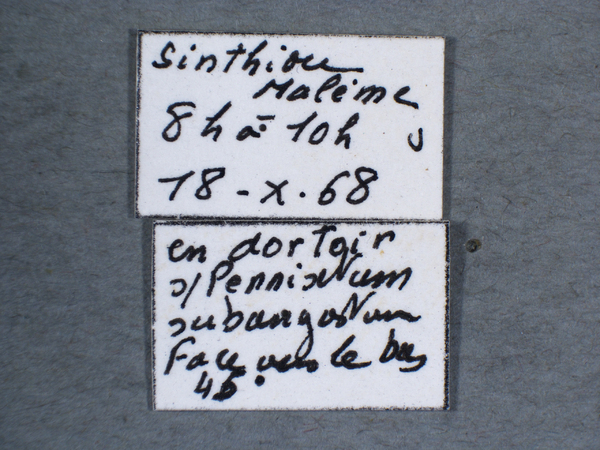 Sinthiou
Malème
8h à 10h
18-X.68
en dortoir
s/Pennisetum
subangustum
Face vers le bas
45°